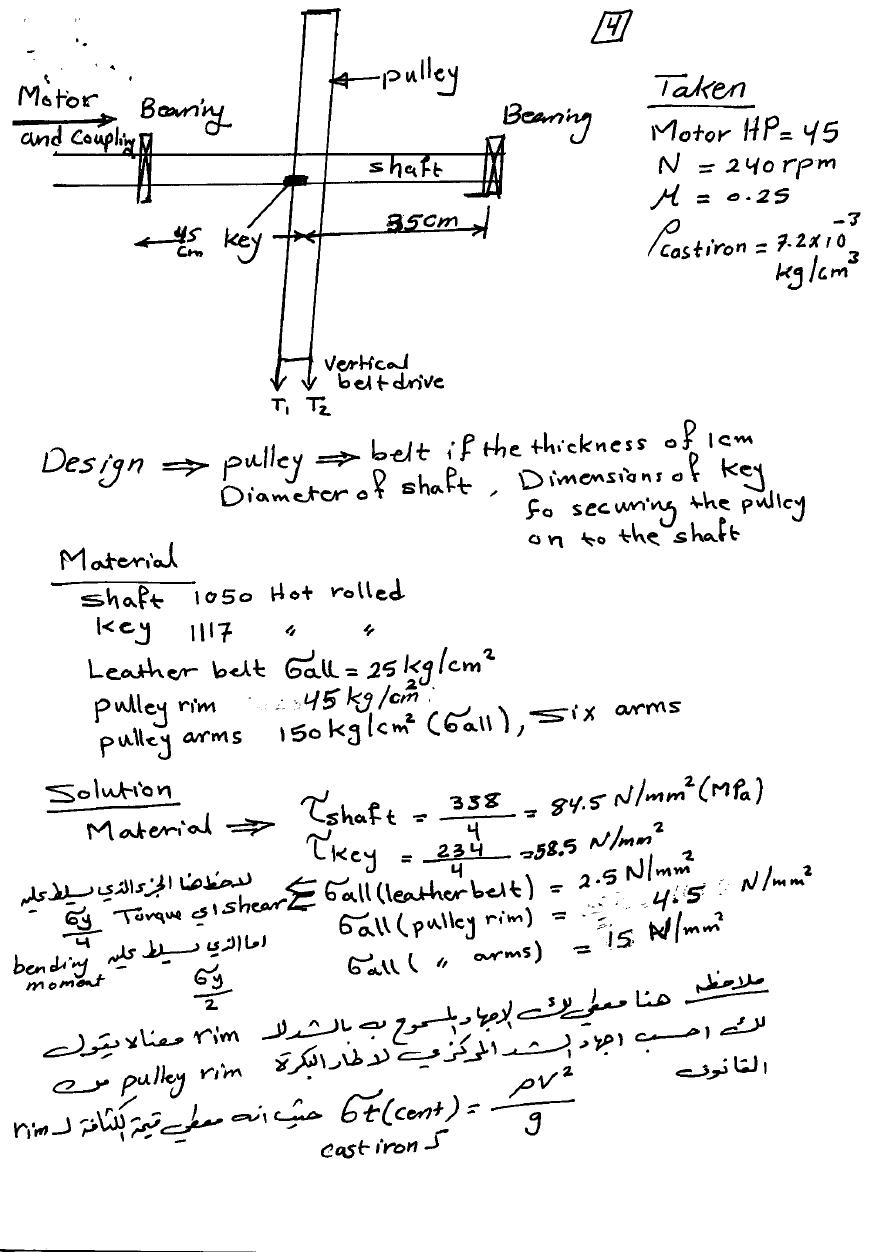 4
pulley
Motor
and Coupling
Bearing
Bearing
shaft
key
45
cm
35cm
Vertical
belt drive
T1 T2
Taken
Motor HP = 45
N = 240 rpm
M = 0.25
ρ cast iron = 7.2x10⁻³
kg/cm³
Design ⇒ pulley ⇒ belt if the thickness of 1cm
Diameter of shaft , Dimensions of key
fo securing the pulley
on to the shaft
Material
shaft 1050 Hot rolled
key 1117 〃 〃
Leather belt σall = 25 kg/cm²
pulley rim 45 kg/cm²
pulley arms 150 kg/cm² (σall), six arms
Solution
Material ⇒ τshaft = 338/4 = 84.5 N/mm² (MPa)
τkey = 234/4 = 58.5 N/mm²
σall (leather belt) = 2.5 N/mm²
σall (pulley rim) = 4.5 N/mm²
σall ( 〃 arms) = 15 N/mm²
لاحظ هنا الجزء الذي يسلط عليه
Torque اي shear σy/4
اما الذي يسلط عليه bending
moment σy/2
ملاحظه هنا معطي لك الاجهاد المسموح به بالشد لـ rim معناه يقول
لك احسب اجهاد الشد المركزي لاطار البكرة pulley rim من
القانون
σt(cent) = ρv²/g حيث انه معطي قيمة الكثافة لـ rim
cast iron